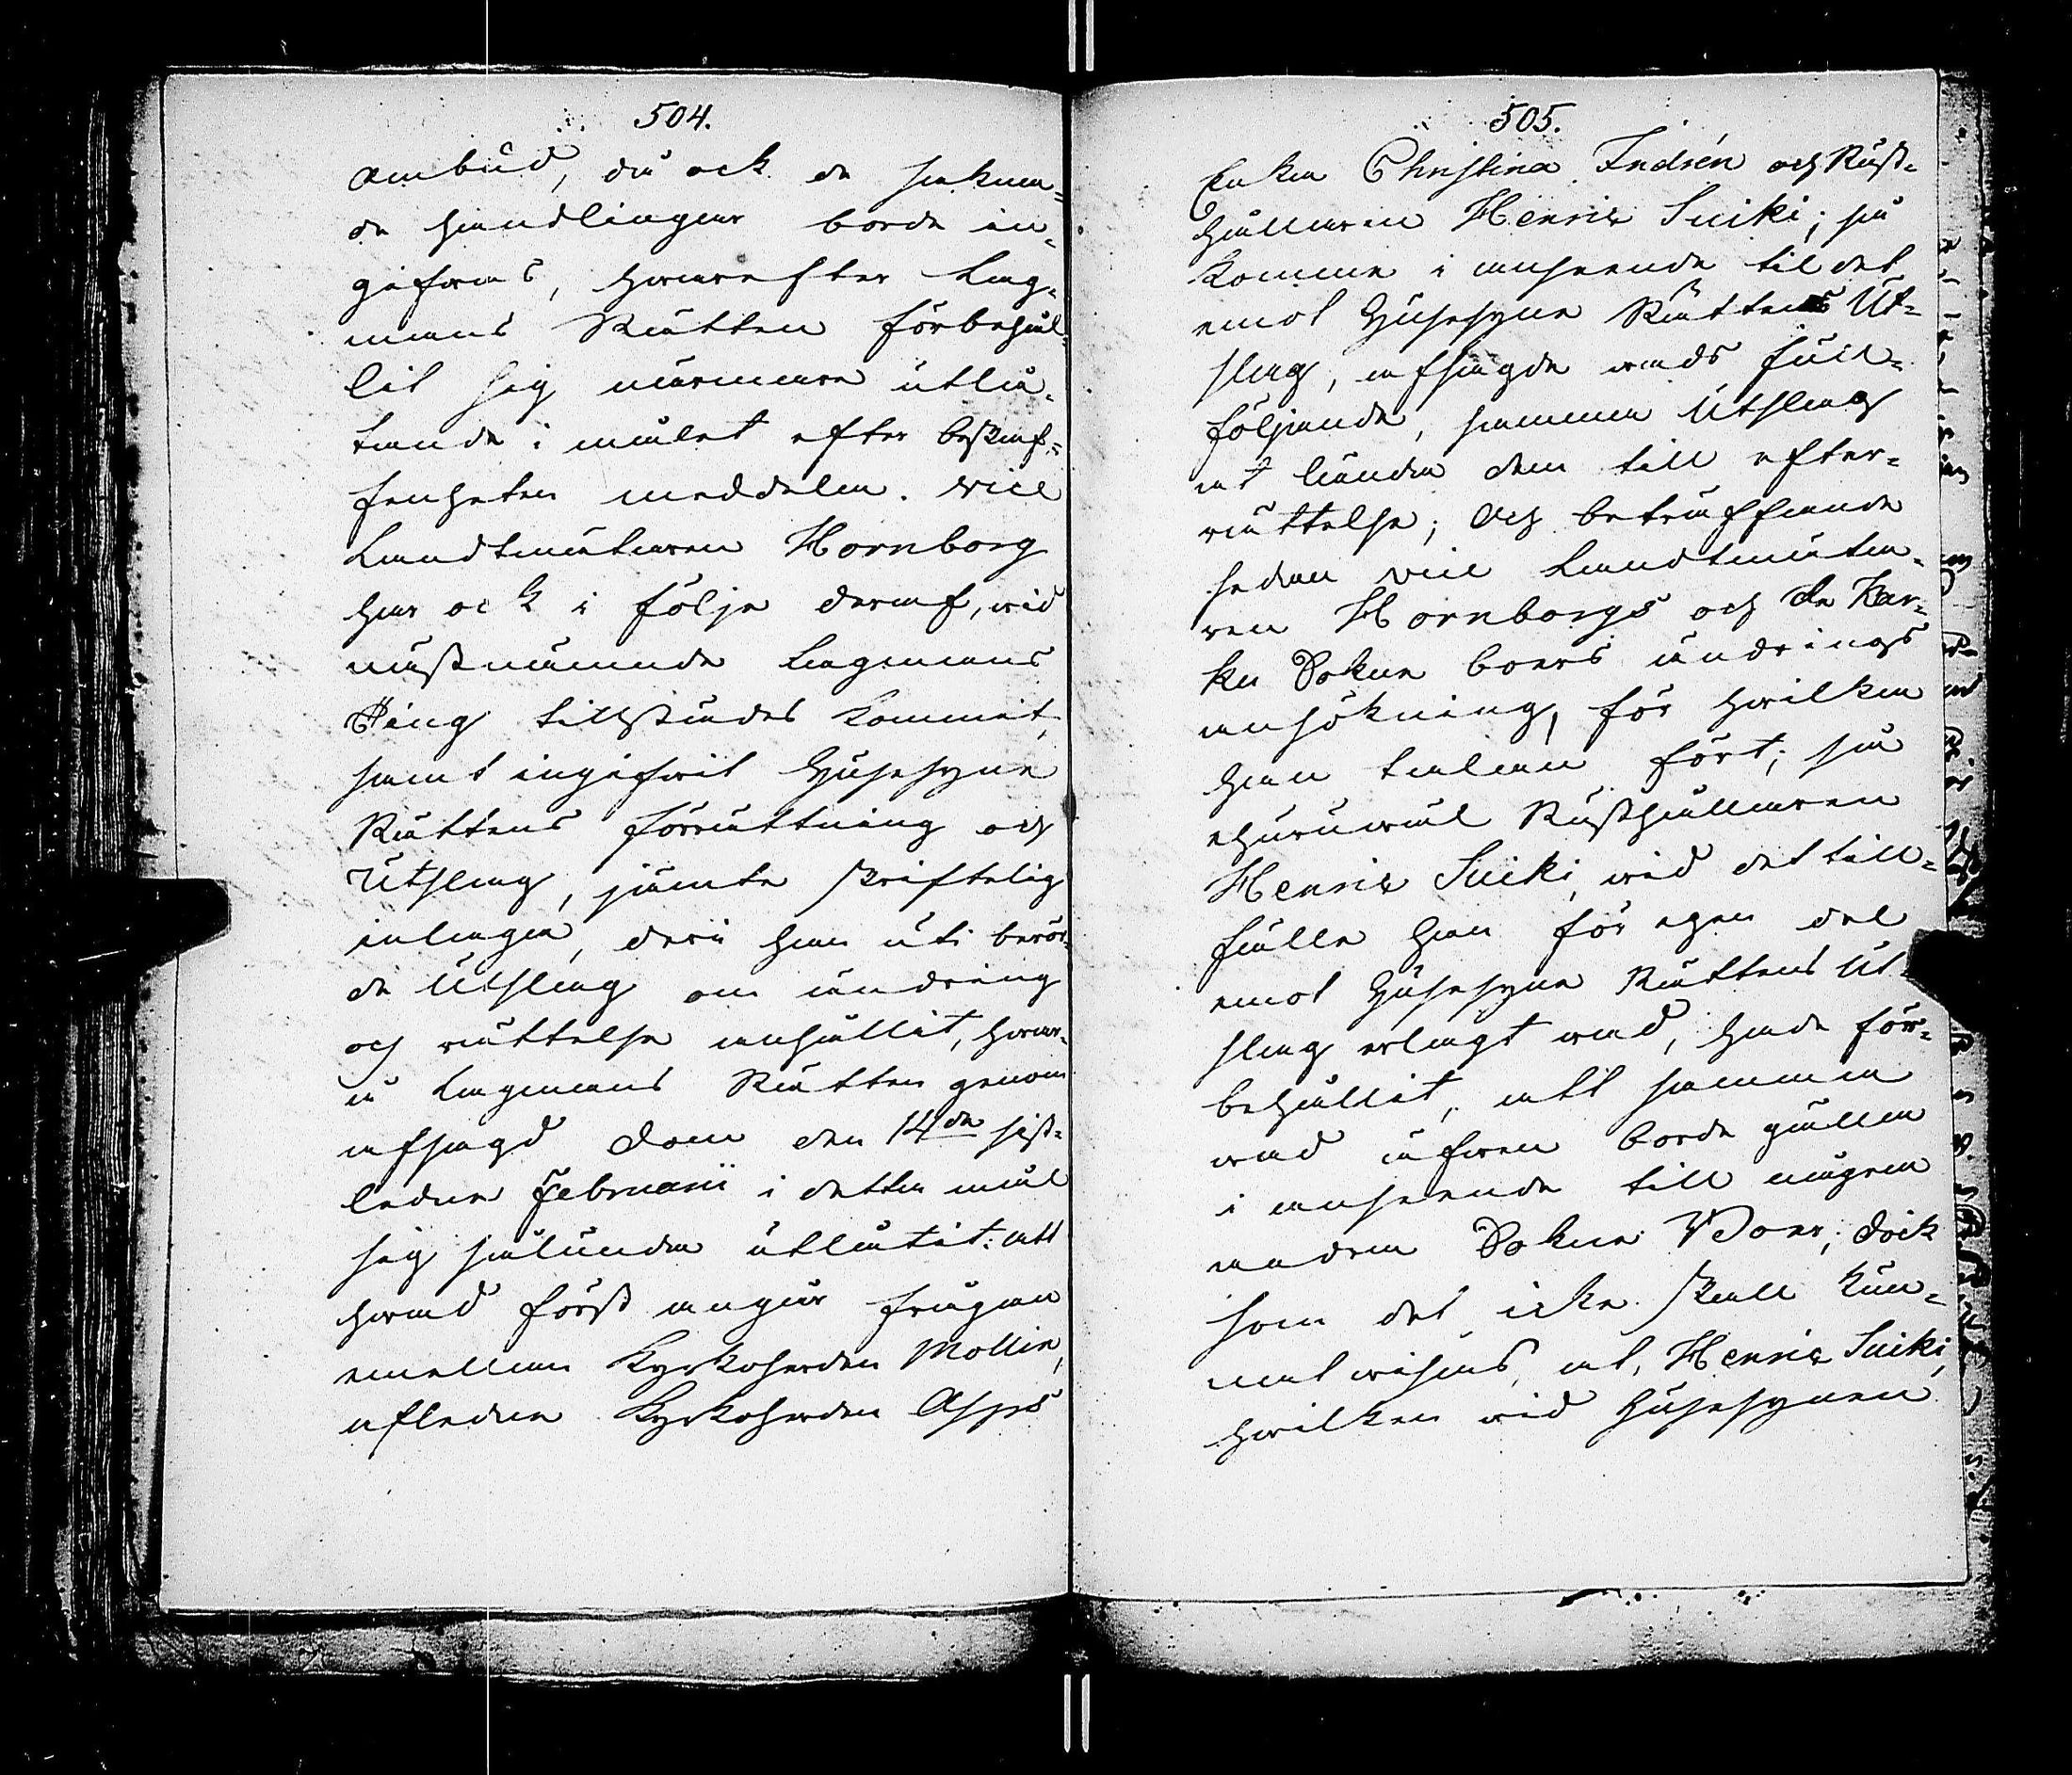 504.
ombud, då ock de sakna-
de handlingar borde in-
gifwas, hwarefter Lag-
mans Rätten förbehål-
lit sig närmare utlå-
tande i målet efter beskaf-
fenheten meddela. Vice
Landtmätaren Hornborg
har ock i följe deraf, wid
nästnämnde Lagmans
Ting tillstädes kommit,
samt ingifwit Husesyne
Rättens förrättning och
Utslag, jämte skriftelig
inlaga, deri han uti berör-
de Utslag om ändring
och rättelse anhållit, hwar-
å Lagmans Rätten genom
afsagd dom den 14de sist-
ledne Februarii i detta mål
sig sålunda utlåtit: att
hwad först angår frågan
emellan Kyrkoherden Mollin,
afledne Kyrkoherden Asps
505.
Enka Christina Indrén och Rust-
hållaren Henric Suiki; så
komme i anseende til det
emot Husesyne Rättens Ut-
slag, afsagde wads full-
följande, samma Utslag
at lända dem till efter-
rättelse; Och beträffande
sedan vice Landtmäta-
ren Hornborgs och de Kar-
ku Sokne boers ändrings
ansökning, för hwilka
han talan fört; så
ehuruwäl Rusthållaren
Henric Suiki, wid det till-
fälle han för egen del
emot Husesyne Rättens Ut-
slag erlagt wad, hade för-
behållit, att samma
wad äfwen borde gälla
i anseende till några
andra Sokne Boer; dock
som det icke skall kun-
nat wisas, at, Henric Suiki,
hwilken wid Husesynen